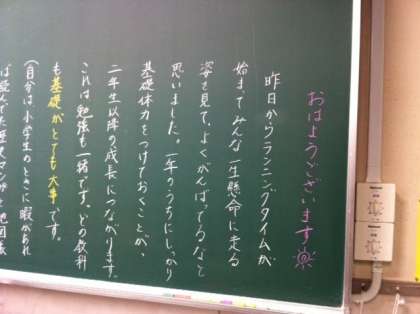 おはようございます
昨日からランニングタイムが
始まってみんな一生懸命に走る
姿を見て、よくがんばってるなと
思いました。一年のうちにしっかり
基礎体力をつけておくことが、
二年生以降の成長につながります。
これは勉強も一緒です。どの教科
も基礎がとても大事です。
(自分は小学生のときに暇があれ
ば